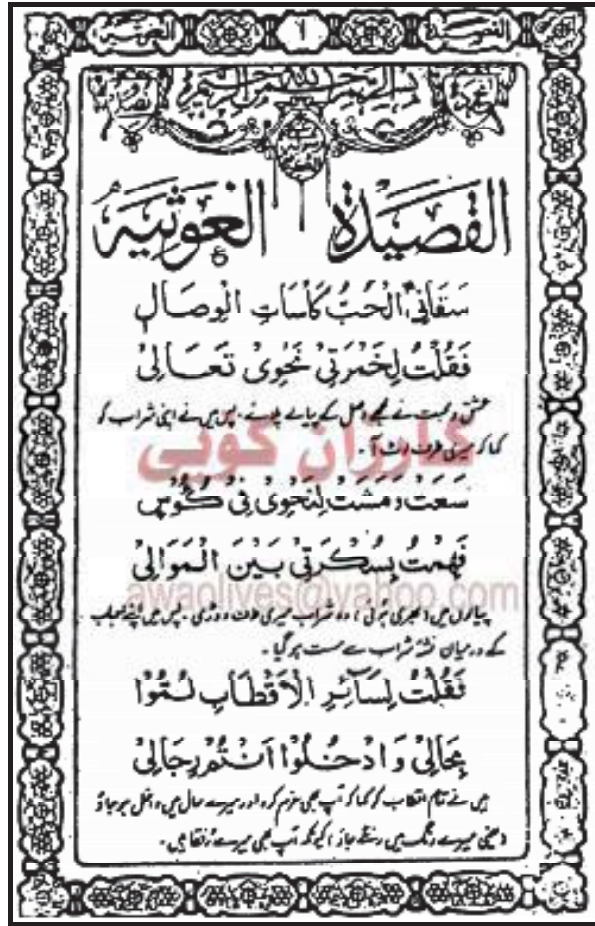 ١
بسم الله الرحمن الرحيم
القصيدة الغوثية
سَقَانِي الْحُبُّ كَأْسَاتِ الْوِصَالِ
فَقُلْتُ لِخَمْرَتِيْ نَحْوِيْ تَعَالِيْ
عشق و محبت نے مجھے وصل کے پیالے پلائے۔ پس میں نے اپنی شراب کو
کہا کہ میری طرف لوٹ آ۔
کارزان کوپی
سَعَتْ وَمَشَتْ لِنَحْوِيْ فِيْ كُئُوْسٍ
فَهِمْتُ بِسُكْرَتِيْ بَيْنَ الْمَوَالِيْ
awaolives@yahoo.com
پیالوں میں (بھری ہوئی) وہ شراب میری طرف دوڑی۔ پس میں اپنے احباب
کے درمیان نشہ شراب سے مست ہو گیا۔
فَقُلْتُ لِسَآئِرِ الْاَقْطَابِ لُمُّوْا
بِحَالِيْ وَادْخُلُوْا اَنْتُمْ رِجَالِيْ
میں نے تمام اقطاب کو کہا کہ آپ بھی عزم کرو اور میرے حال میں داخل ہو جاؤ
(یعنی میرے رنگ میں رنگے جاؤ) کیونکہ آپ بھی میرے رفقا ہیں۔